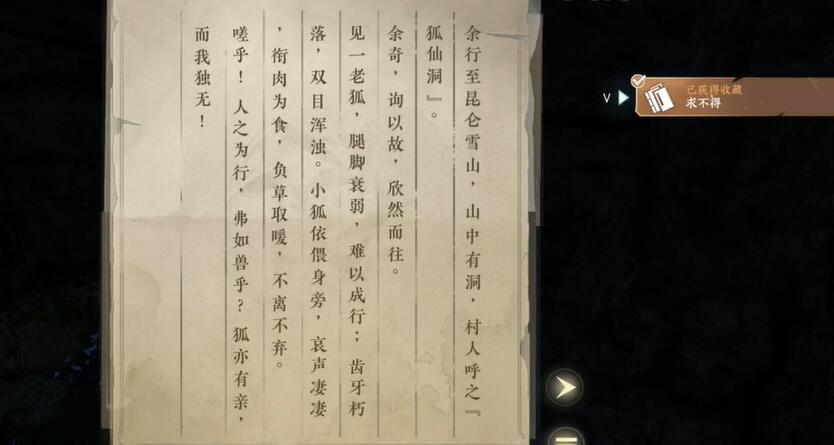 余行至昆仑雪山，山中有洞，村人呼之『
狐仙洞』。
余奇，询以故，欣然而往。
见一老狐，腿脚衰弱，难以成行；齿牙朽
落，双目浑浊。小狐依偎身旁，哀声凄凄
，衔肉为食，负草取暖，不离不弃。
嗟乎！人之为行，弗如兽乎？狐亦有亲，
而我独无！
V
已获得收藏
求不得